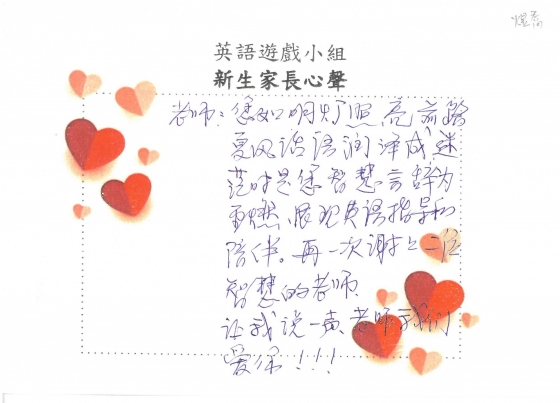 英語遊戲小組
新生家長心聲
老师：您如明灯照亮前路
夏风话语润泽成迷
茫时是您智慧言辞为
我燃、展现英语指导和
陪伴。再一次谢谢二位
智慧的老师
让我说一声老师我们
爱你!!!